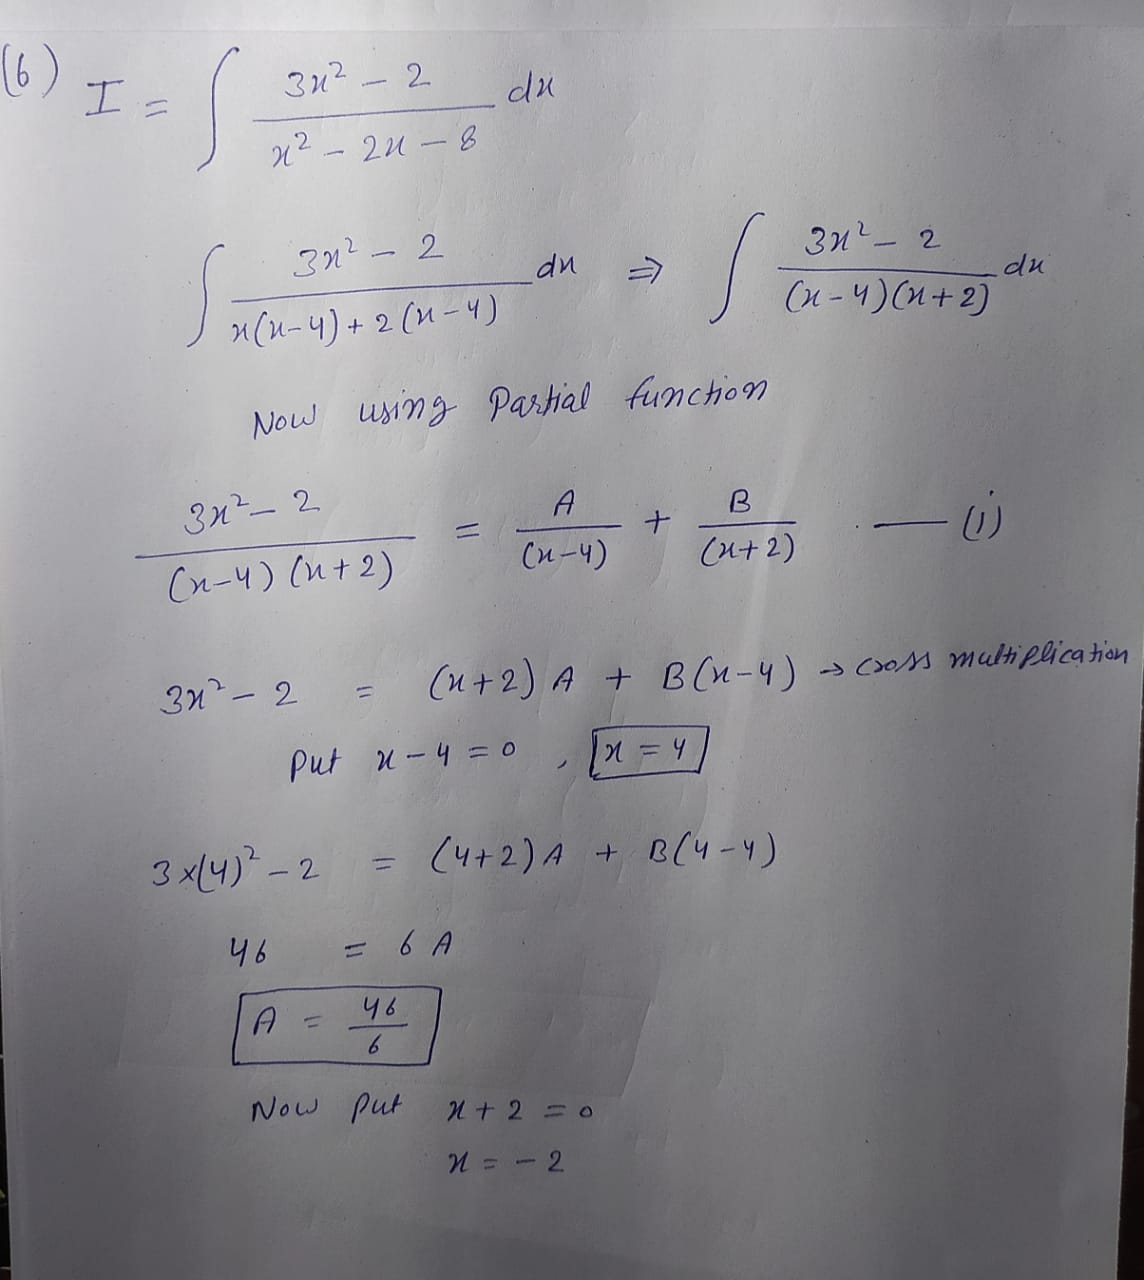 (6) I = ∫ (3x² - 2)/(x² - 2x - 8) dx
∫ (3x² - 2)/(x(x-4) + 2(x-4)) dx ⇒ ∫ (3x² - 2)/((x-4)(x+2)) dx
Now using Partial function
(3x² - 2)/((x-4)(x+2)) = A/(x-4) + B/(x+2) — (i)
3x² - 2 = (x+2) A + B(x-4) → cross multiplication
Put x - 4 = 0 , x = 4
3×(4)² - 2 = (4+2) A + B(4-4)
46 = 6 A
A = 46/6
Now Put x + 2 = 0
x = - 2